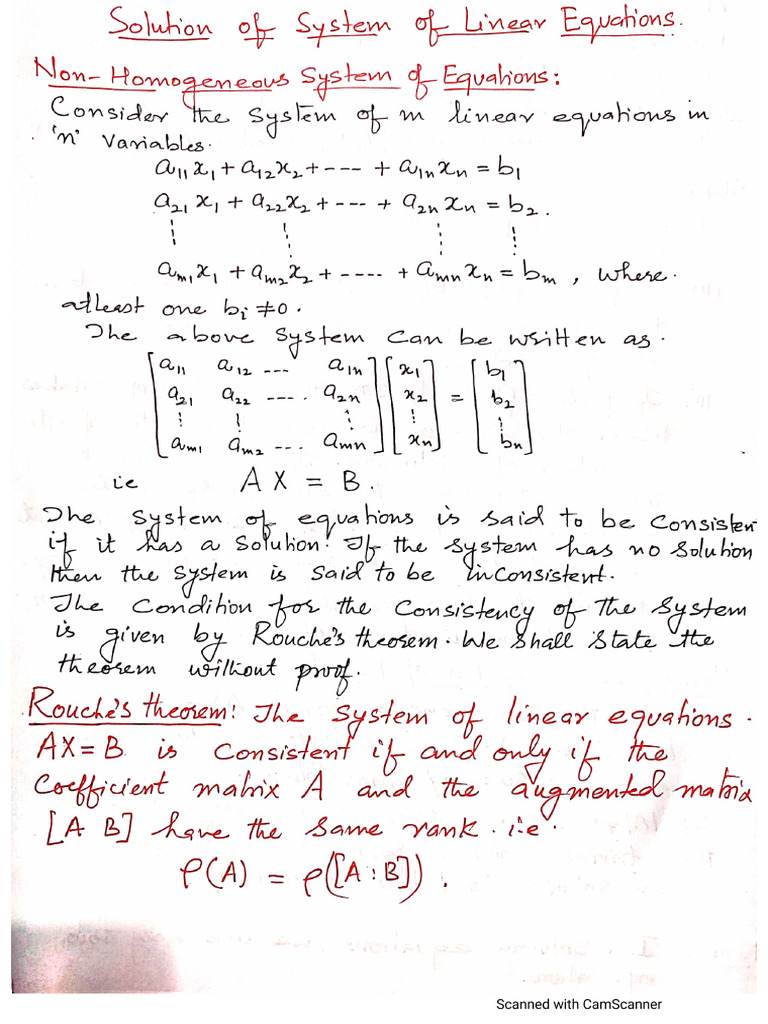 Solution of System of Linear Equations.
Non-Homogeneous System of Equations:
Consider the system of m linear equations in
'n' variables.
a₁₁x₁ + a₁₂x₂ + --- + a₁ₙxₙ = b₁
a₂₁x₁ + a₂₂x₂ + --- + a₂ₙxₙ = b₂.
⋮ ⋮ ⋮ ⋮
aₘ₁x₁ + aₘ₂x₂ + ---- + aₘₙxₙ = bₘ, where.
atleast one bᵢ ≠ 0.
The above system can be written as.
[a₁₁ a₁₂ --- a₁ₙ] [x₁] [b₁]
[a₂₁ a₂₂ ---- a₂ₙ] [x₂] = [b₂]
[⋮ ⋮ ⋮] [⋮] [⋮]
[aₘ₁ aₘ₂ --- aₘₙ] [xₙ] [bₙ]
ie AX = B.
The system of equations is said to be consisten
if it has a solution. If the system has no solution
then the system is said to be inconsistent.
The condition for the consistency of the system
is given by Rouche's theorem. We shall state the
theorem without proof.
Rouche's theorem: The system of linear equations.
AX=B is consistent if and only if the
coefficient matrix A and the augmented matrix
[A B] have the same rank. i.e.
ρ(A) = ρ([A : B]).
Scanned with CamScanner